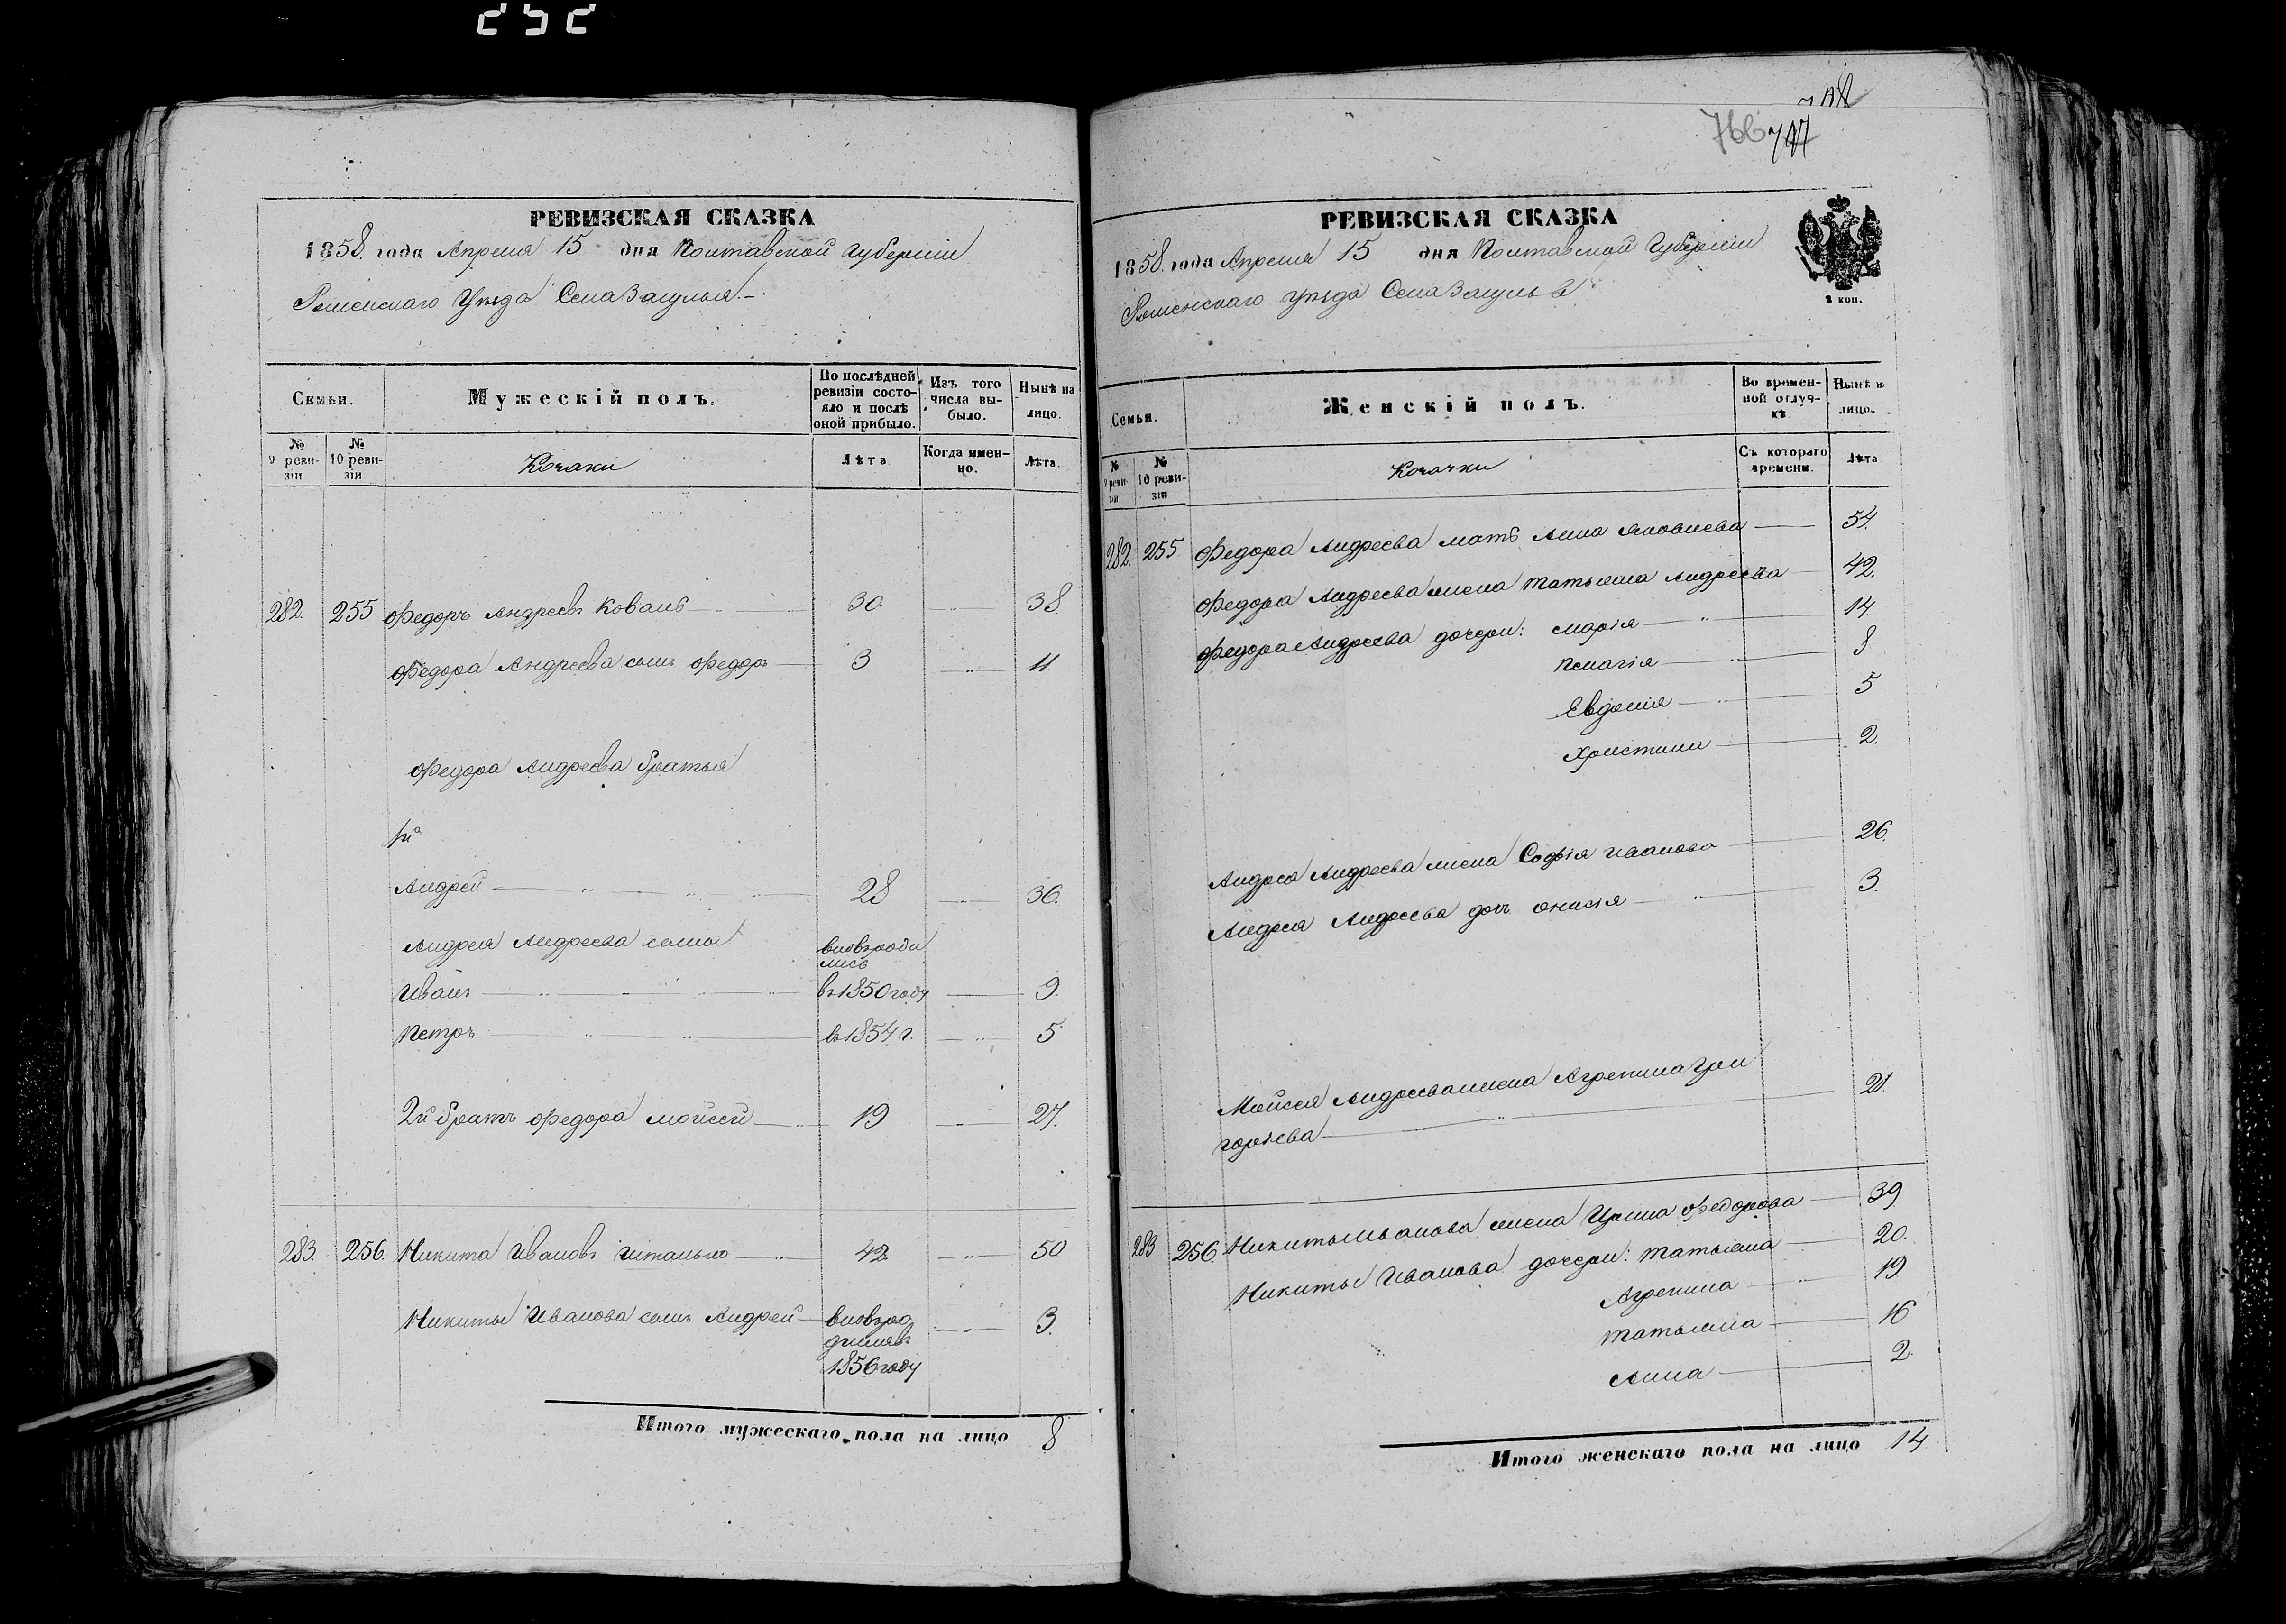 252
766
РЕВИЗСКАЯ СКАЗКА
1858. года Апреля 15 дня Полтавской Губерніи
Роменскаго Уѣзда Села Засулья.-
Семьи.
Мужескій полъ.
По послѣдней ревизіи состояло и послѣ оной прибыло.
Изъ того числа выбыло.
Нынѣ на лицо.
№ 9 ревизіи
№ 10 ревизіи
Козаки
Лѣта
Когда именно.
Лѣта.
282. 255 Федоръ Андреевъ Коваль 30. 38
Федора Андреева сынъ Федоръ 3 11.
Федора Андреева братья
1й
Андрей 28 36.
Андрея Андреева сыны вновь роди
лись
Иванъ въ 1850 году 9.
Петръ въ 1854 г. 5
2й братъ Федора Мойсей 19 27.
283. 256. Никита Ивановъ 42 50
Никиты Иванова сынъ Андрей 3.
1856 году
Итого мужескаго пола на лицо 8
РЕВИЗСКАЯ СКАЗКА
1858. года Апреля 15 дня Полтавской Губерніи
Роменскаго уѣзда Села Засулья
2 коп.
Семьи.
Женскій полъ.
Во временной отлучкѣ
Нынѣ на лицо.
№ 9 ревизіи
№ 10 ревизіи
Козачки
Съ котораго времени.
Лѣта
282. 255 Федора Андреева мать Анна Яковлева 54.
Федора Андреева жена Татьяна Андреева 42.
Федора Андреева дочери: Марія 14.
Пелагія 8
Евдокія 5
Христина 2.
Андрея Андреева жена Софія Иванова 26.
Андрея Андреева дочь 3.
Мойсея Андреева жена Агрепина Гри
горьева 21.
283 256. Никиты Иванова жена Ирина Федорова 39
Никиты Иванова дочери: Татьяна 20.
Агрепина 19
Татьяна 16
Анна 2.
Итого женскаго пола на лицо 14